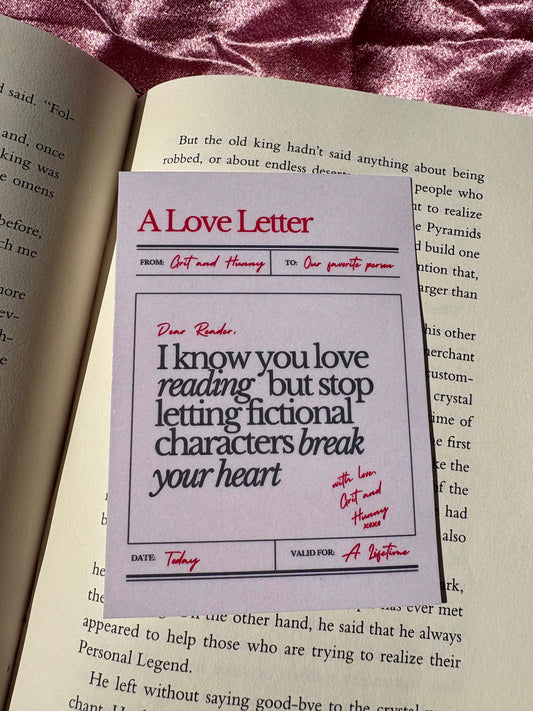 d said. "Fol-
and, once
king was
e omens
before,
ch me
more
ev-
h-
But the old king hadn't said anything about being
robbed, or about endless deserts
people who
nt to realize
e Pyramids
d build one
ntion that,
arger than
A Love Letter
FROM: Grit and Hunny TO: Our favorite person
Dear Reader,
I know you love
reading but stop
letting fictional
characters break
your heart
with love,
Grit and
Hunny
xoxo
DATE: Today VALID FOR: A Lifetime
his other
merchant
custom-
crystal
ime of
e first
ke the
of the
had
also
he
the
has ever met
the other hand, he said that he always
appeared to help those who are trying to realize their
Personal Legend.
He left without saying good-bye to the crystal